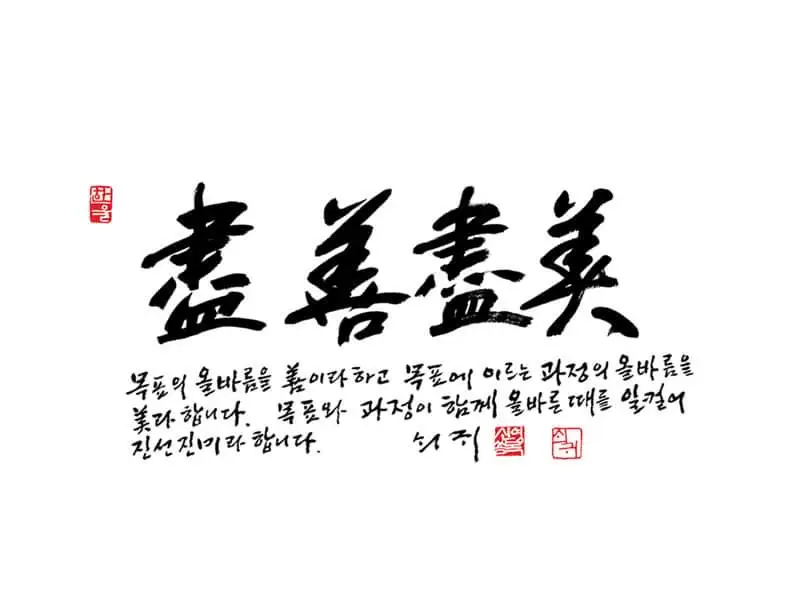 盡善盡美
목표의 올바름을 善이라하고 목표에 이르는 과정의 올바름을
美라 합니다. 목표와 과정이 함께 올바른 때를 일컬어
진선진미라 합니다.
쇠귀